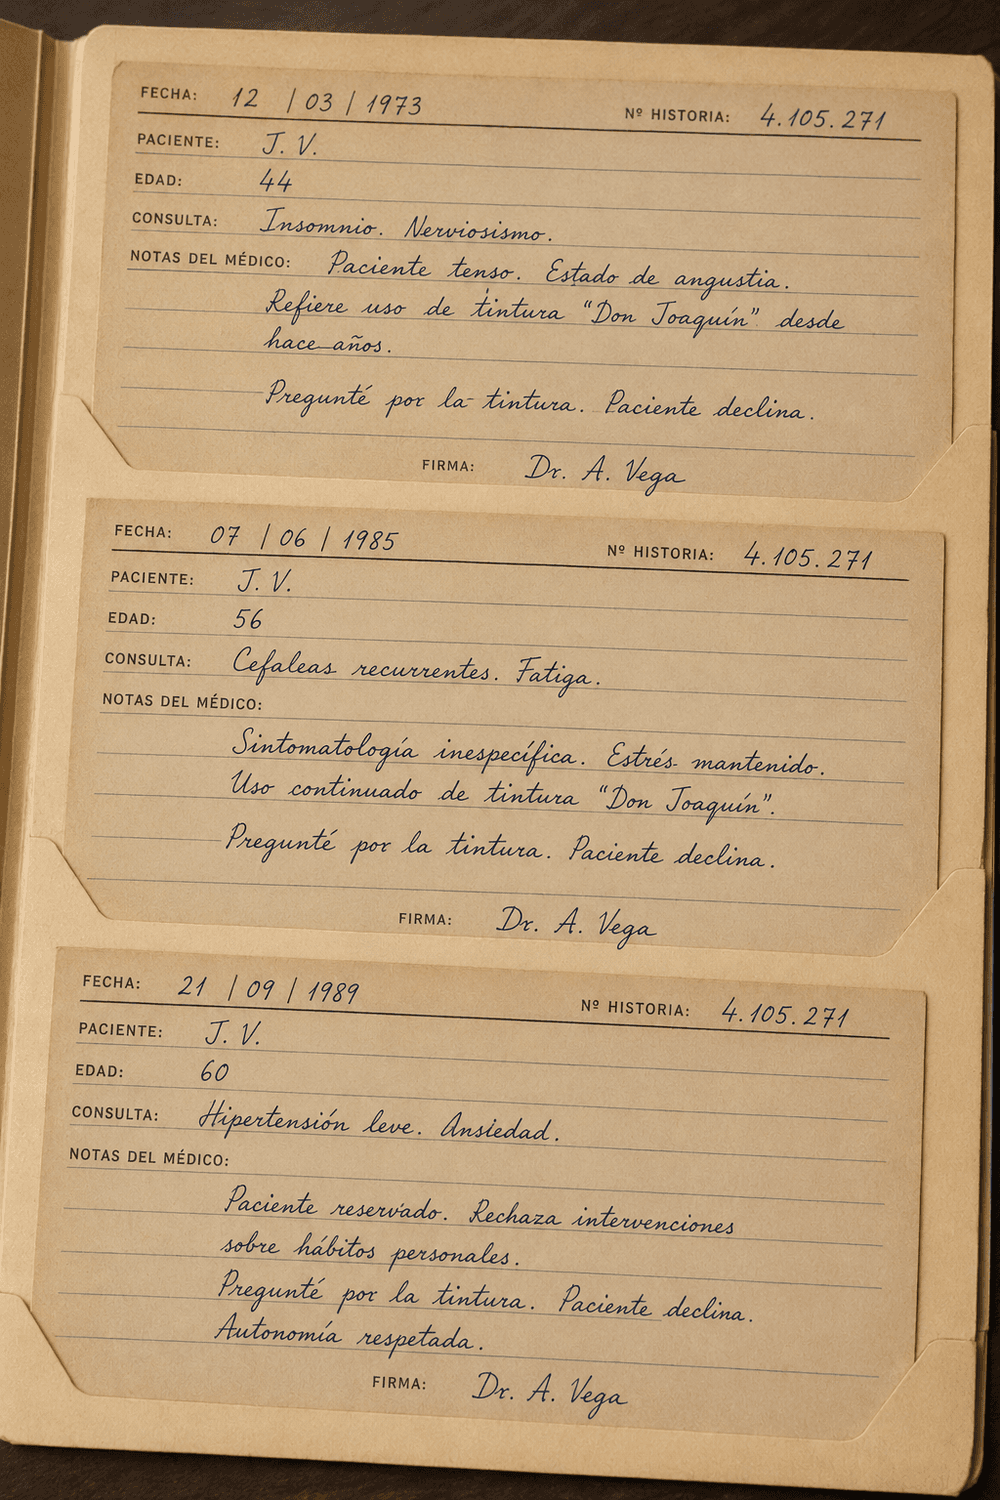 FECHA: 12 / 03 / 1973 Nº HISTORIA: 4.105.271
PACIENTE: J. V.
EDAD: 44
CONSULTA: Insomnio. Nerviosismo.
NOTAS DEL MÉDICO: Paciente tenso. Estado de angustia.
Refiere uso de tintura “Don Joaquín” desde
hace años.
Pregunté por la tintura. Paciente declina.
FIRMA: Dr. A. Vega
FECHA: 07 / 06 / 1985 Nº HISTORIA: 4.105.271
PACIENTE: J. V.
EDAD: 56
CONSULTA: Cefaleas recurrentes. Fatiga.
NOTAS DEL MÉDICO:
Sintomatología inespecífica. Estrés mantenido.
Uso continuado de tintura “Don Joaquín”.
Pregunté por la tintura. Paciente declina.
FIRMA: Dr. A. Vega
FECHA: 21 / 09 / 1989 Nº HISTORIA: 4.105.271
PACIENTE: J. V.
EDAD: 60
CONSULTA: Hipertensión leve. Ansiedad.
NOTAS DEL MÉDICO:
Paciente reservado. Rechaza intervenciones
sobre hábitos personales.
Pregunté por la tintura. Paciente declina.
Autonomía respetada.
FIRMA: Dr. A. Vega